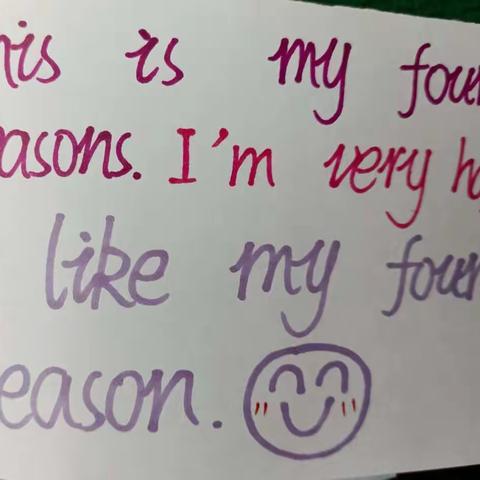 his is my four
easons. I'm very ha
like my four
eason.